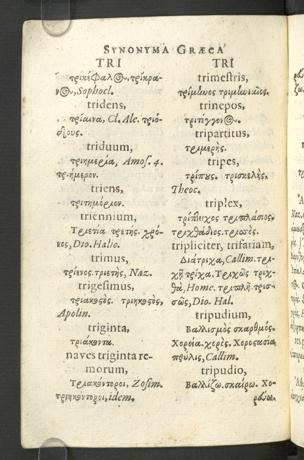 SYNONYMA GRÆCA
TRI
τρικέφαλος. τρίκρα-
νος, Sophocl.
tridens,
τρίαινα, Cl. Ale. τριό-
triduum,
τριημερία, Amos. 4.
τριήμερον.
triens,
τριτημόριον.
triennium,
Τριετία τριετὴς χρό-
νος, Dio. Halic.
trimus,
τρίενος. τριετὴς, Naz.
trigesimus,
τριακοστὸς. τριηκοστὸς,
Apolin.
triginta,
τριάκοντα.
naves triginta re-
morum,
Τριακόντοροι, Zosim.
τριηκόντοροι, idem.
TRI
trimestris,
τρίμηνος τριμηνιαῖος.
trinepos,
τριτέγγονος.
tripartitus,
τριμερής.
tripes,
τρίπους. τρισκελὴς,
Theoc.
triplex,
τρίπτυχος τριπλάσιος,
τριχθάδιος. τρισσός.
tripliciter, trifariam,
Διάτριχα, Callim. τρι-
χῆ τρίχα. Τριχῶς τριχ-
θὰ, Home. τριπλῆ τρισ-
σῶς, Dio. Hal.
tripudium,
Βαλλισμὸς σκαρθμός.
Χορεία. χορὸς. Χοροστασία
Callim.
tripudio,
Βαλλίζω. σκαίρω. Χο-